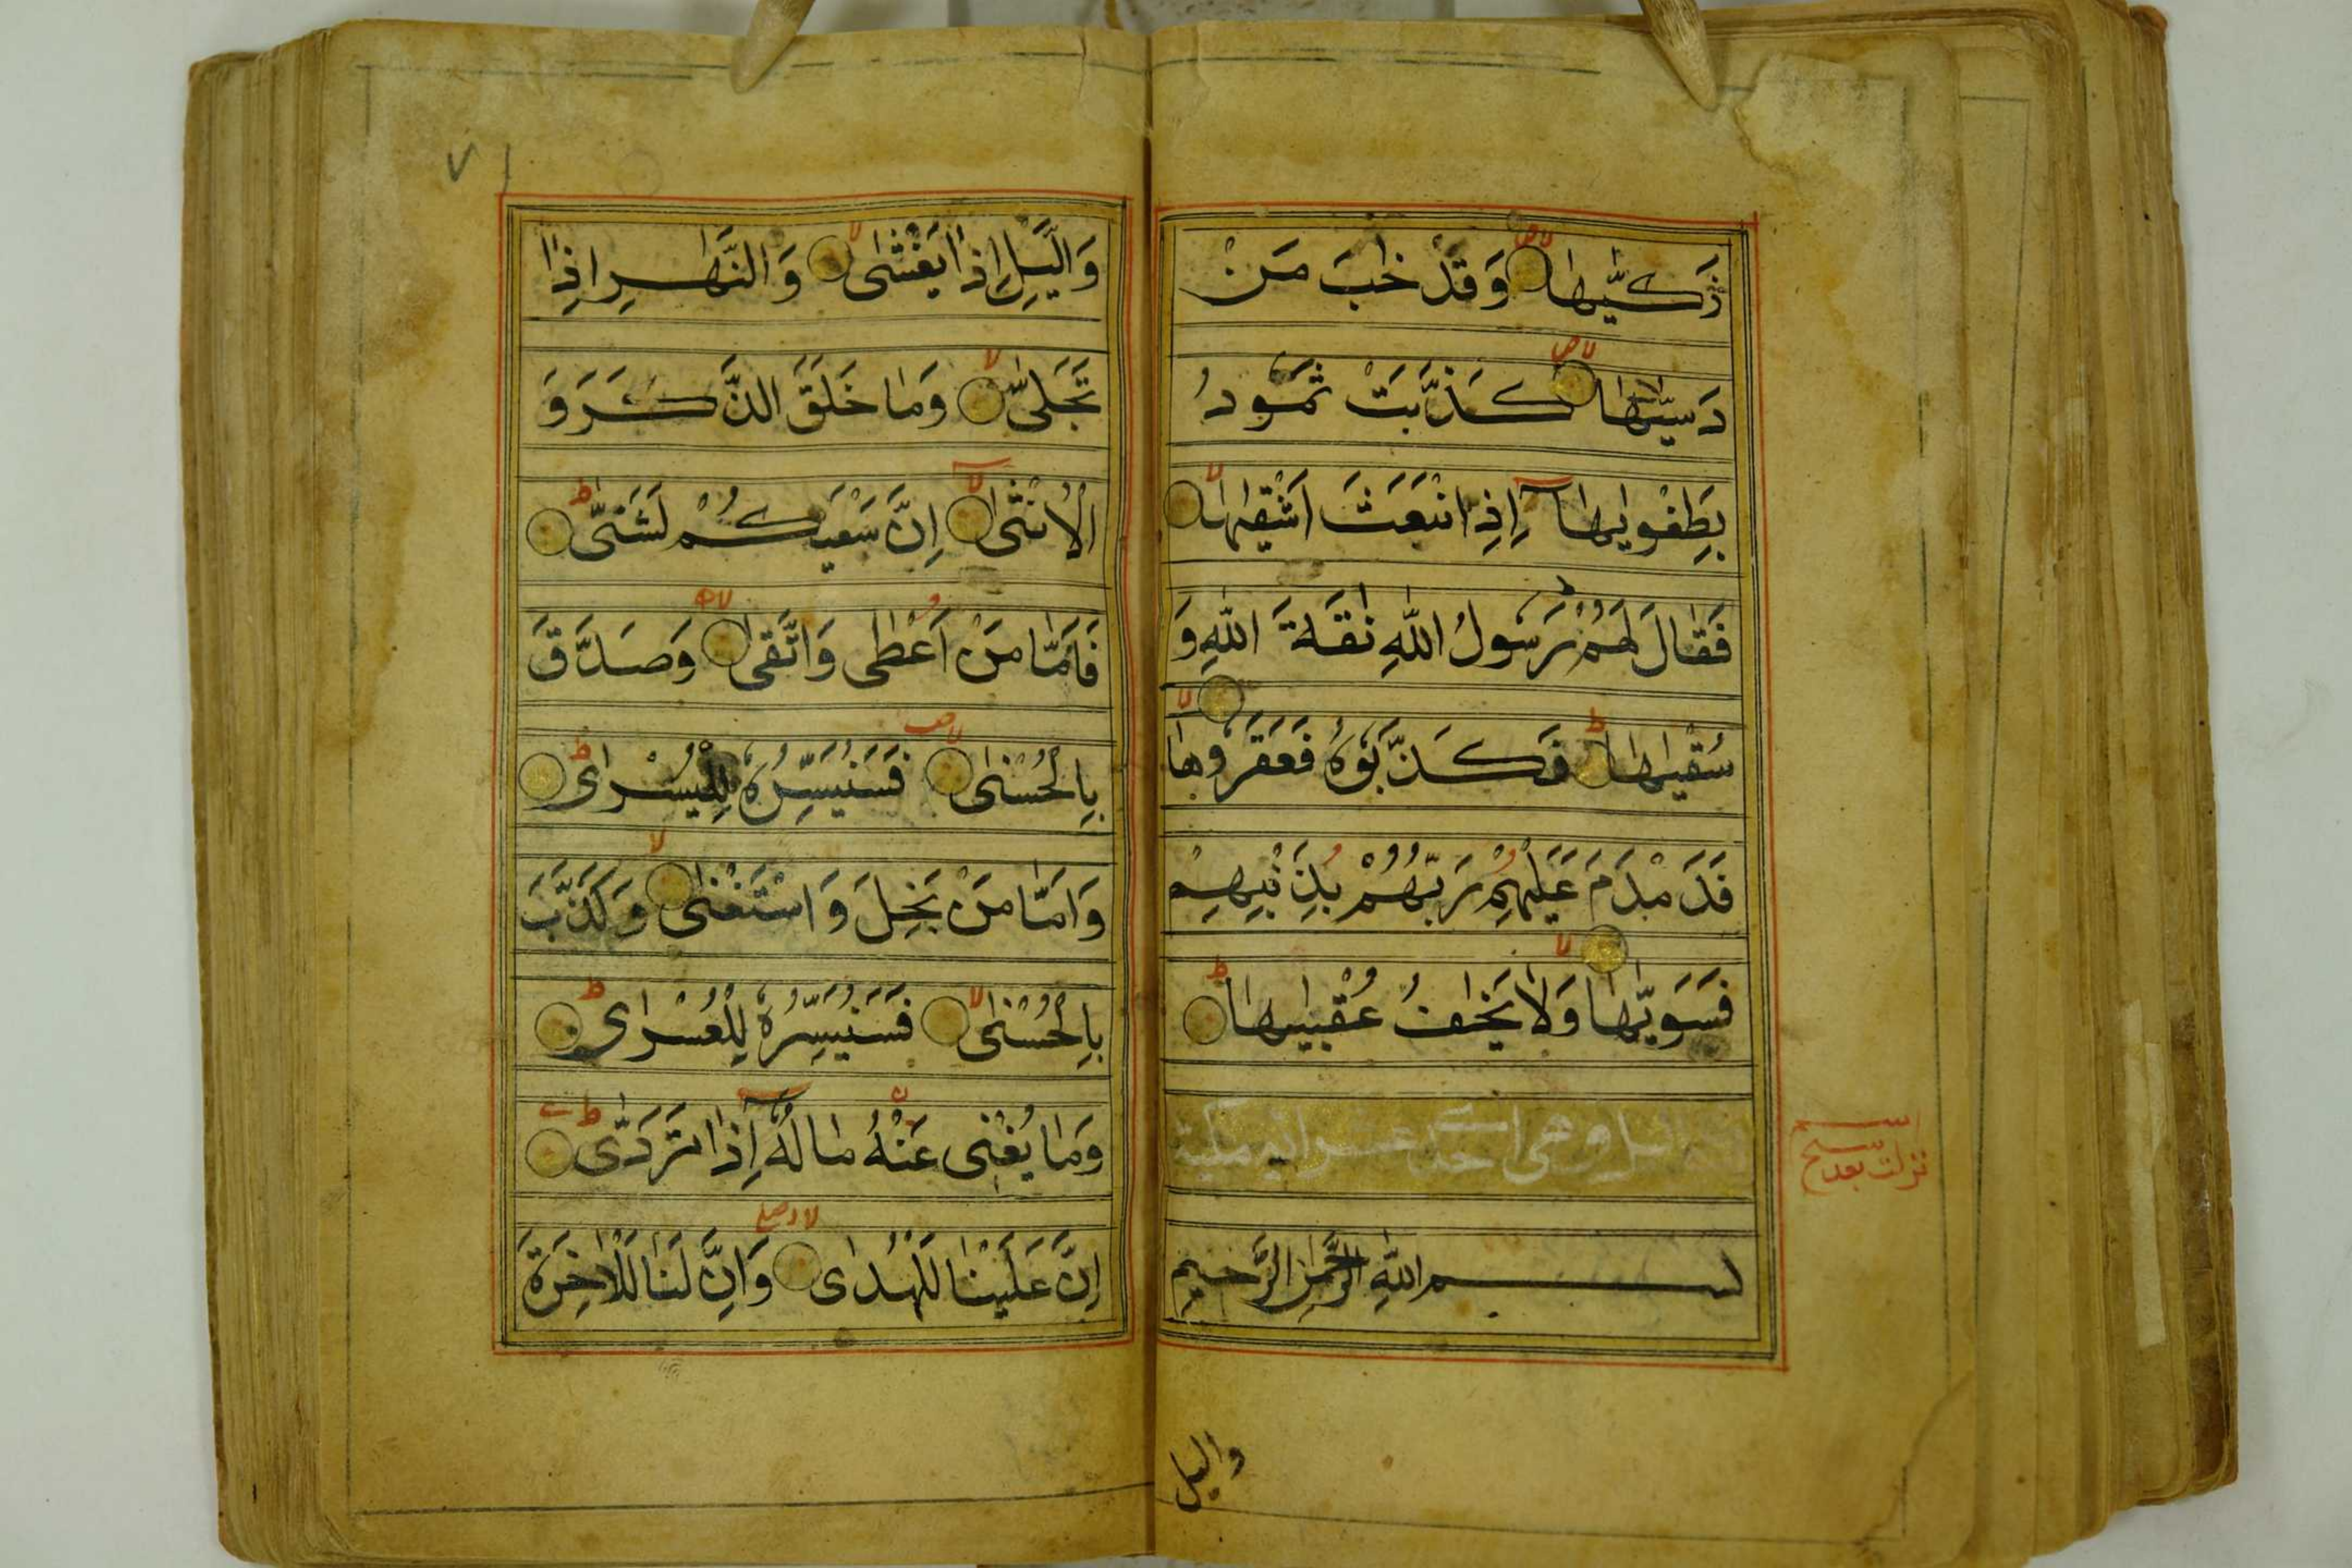 زَكّٰىهَا وَقَدْ خَابَ مَنْ
دَسّٰىهَا كَذَّبَتْ ثَمُودُ
بِطَغْوٰىهَا اِذِ انْبَعَثَ اَشْقٰىهَا
فَقَالَ لَهُمْ رَسُولُ اللّٰهِ نَاقَةَ اللّٰهِ وَ
سُقْيٰهَا فَكَذَّبُوهُ فَعَقَرُوهَا
فَدَمْدَمَ عَلَيْهِمْ رَبُّهُمْ بِذَنْبِهِمْ
فَسَوّٰىهَا وَلَا يَخَافُ عُقْبٰىهَا
اليل وهى احدى عشر اية مكية
نزلت بعد سبح
بسم اللّٰهِ الرَّحْمٰنِ الرَّحِيمِ
واليل
٧١
وَالَّيْلِ اِذَا يَغْشٰى وَالنَّهَارِ اِذَا
تَجَلّٰى وَمَا خَلَقَ الذَّكَرَ وَ
الْاُنْثٰى اِنَّ سَعْيَكُمْ لَشَتّٰى
فَاَمَّا مَنْ اَعْطٰى وَاتَّقٰى وَصَدَّقَ
بِالْحُسْنٰى فَسَنُيَسِّرُهُ لِلْيُسْرٰى
وَاَمَّا مَنْ بَخِلَ وَاسْتَغْنٰى وَكَذَّبَ
بِالْحُسْنٰى فَسَنُيَسِّرُهُ لِلْعُسْرٰى
وَمَا يُغْنِى عَنْهُ مَالُهُ اِذَا تَرَدّٰى
اِنَّ عَلَيْنَا لَلْهُدٰى وَاِنَّ لَنَا لَلْاٰخِرَةَ